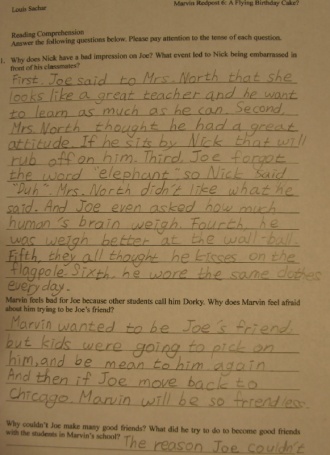 Louis Sachar
Marvin Redpost 6: A Flying Birthday Cake?
Reading Comprehension
Answer the following questions below. Please pay attention to the tense of each question.
1. Why does Nick have a bad impression on Joe? What event led to Nick being embarrassed in
front of his classmates?
First, Joe said to Mrs. North that she
looks like a great teacher and he want
to learn as much as he can. Second,
Mrs. North thought he had a great
attitude. If he sits by Nick that will
rub off on him. Third, Joe forgot
the word "elephant" so Nick said
"Duh". Mrs. North didn't like what he
said. And Joe even asked how much
human's brain weigh. Fourth, he
was weigh better at the wall-ball.
Fifth, they all thought he kisses on the
flagpole. Sixth. he wore the same clothes
everyday.
Marvin feels bad for Joe because other students call him Dorky. Why does Marvin feel afraid
about him trying to be Joe's friend?
Marvin wanted to be Joe's friend
but kids were going to pick on
him, and be mean to him again.
And then if Joe move back to
Chicago Marvin will be so friendless.
Why couldn't Joe make many good friends? What did he try to do to become good friends
with the students in Marvin's school?
The reason Joe couldn't